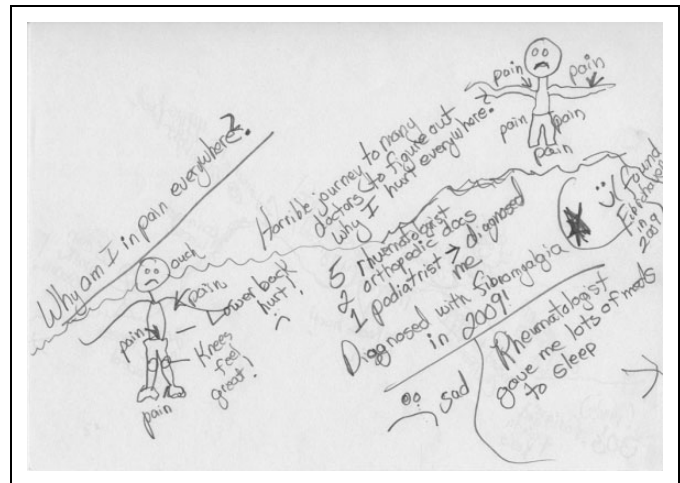 Why am I in pain everywhere?
ouch
pain
Lower back
hurt!
pain
Knees
feel
great!
pain
Horrible journey to many
doctors to figure out
why I hurt everywhere?
pain
pain
pain
pain
pain
5 rheumatologist
2 orthopedic docs
1 podiatrist → diagnosed
me
Diagnosed with fibromyalgia
in 2009!
I found
in
2009
sad
Rheumatologist
gave me lots of meds
to sleep